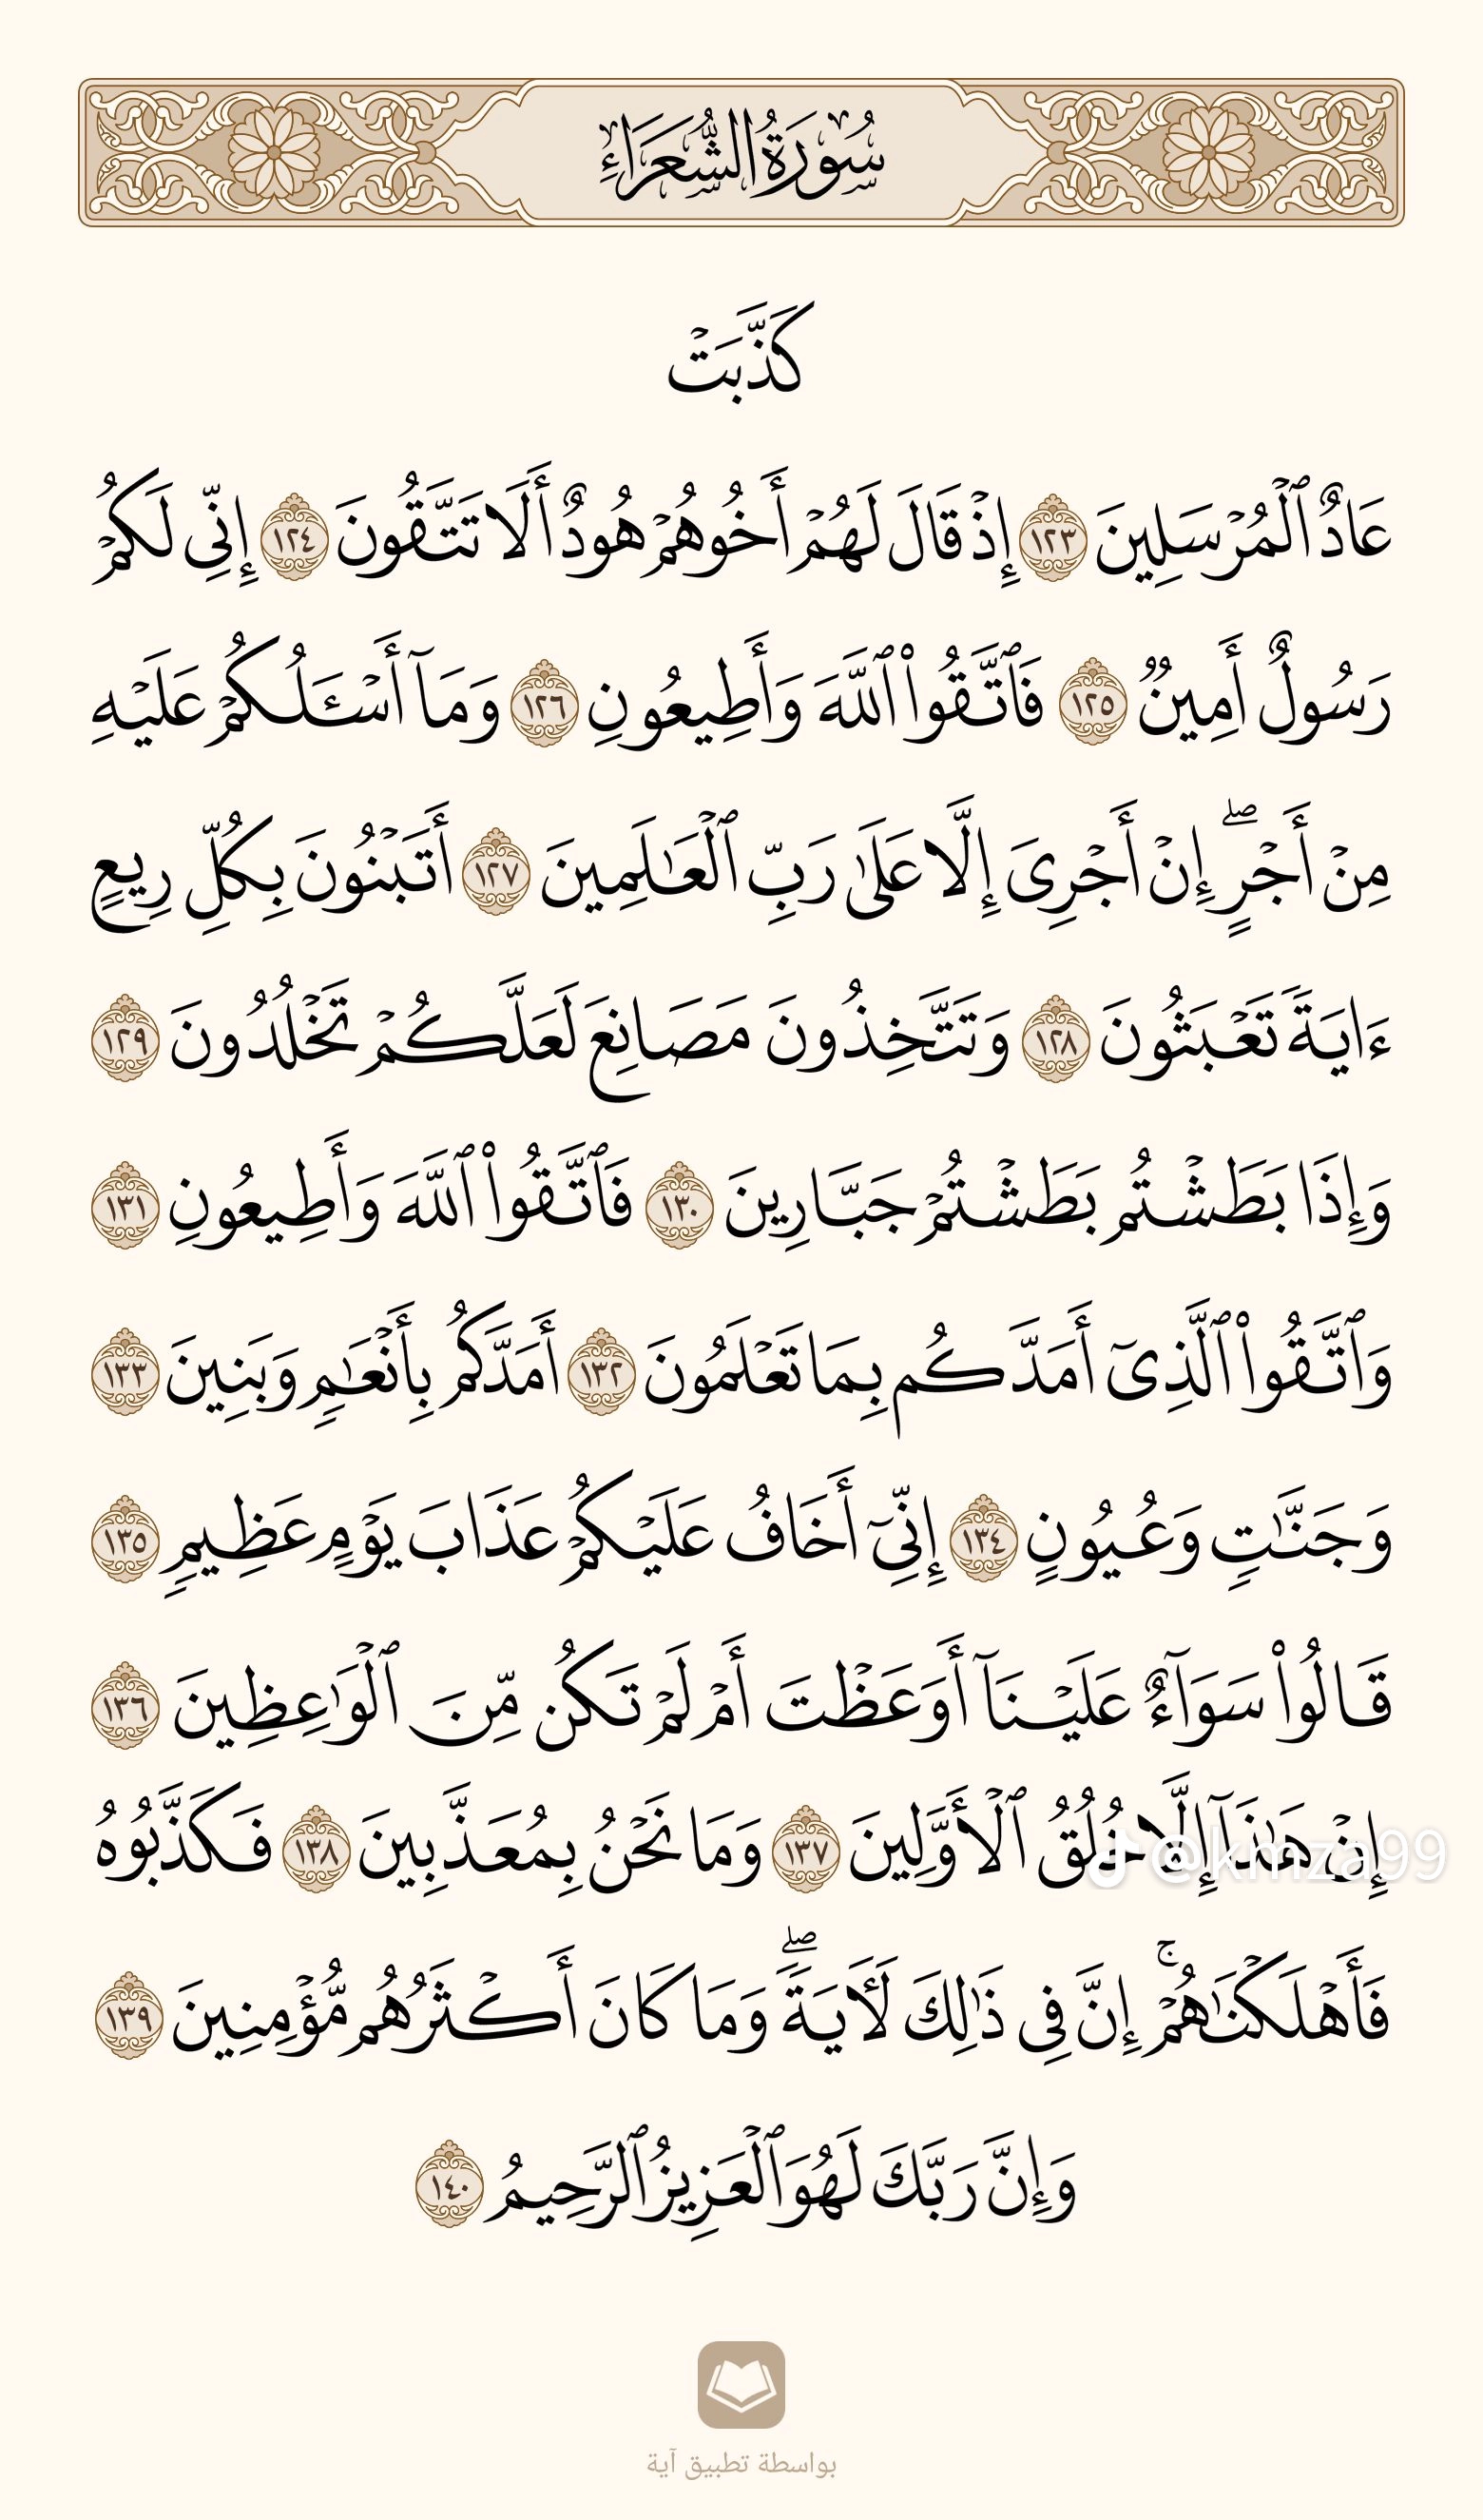 سُورَةُ الشُّعَرَاءِ
كَذَّبَتْ
عَادٌ ٱلْمُرْسَلِينَ ١٢٣ إِذْ قَالَ لَهُمْ أَخُوهُمْ هُودٌ أَلَا تَتَّقُونَ ١٢٤ إِنِّى لَكُمْ
رَسُولٌ أَمِينٌ ١٢٥ فَٱتَّقُوا۟ ٱللَّهَ وَأَطِيعُونِ ١٢٦ وَمَآ أَسْـَٔلُكُمْ عَلَيْهِ
مِنْ أَجْرٍ ۖ إِنْ أَجْرِىَ إِلَّا عَلَىٰ رَبِّ ٱلْعَـٰلَمِينَ ١٢٧ أَتَبْنُونَ بِكُلِّ رِيعٍ
ءَايَةً تَعْبَثُونَ ١٢٨ وَتَتَّخِذُونَ مَصَانِعَ لَعَلَّكُمْ تَخْلُدُونَ ١٢٩
وَإِذَا بَطَشْتُم بَطَشْتُمْ جَبَّارِينَ ١٣٠ فَٱتَّقُوا۟ ٱللَّهَ وَأَطِيعُونِ ١٣١
وَٱتَّقُوا۟ ٱلَّذِىٓ أَمَدَّكُم بِمَا تَعْلَمُونَ ١٣٢ أَمَدَّكُم بِأَنْعَـٰمٍ وَبَنِينَ ١٣٣
وَجَنَّـٰتٍ وَعُيُونٍ ١٣٤ إِنِّىٓ أَخَافُ عَلَيْكُمْ عَذَابَ يَوْمٍ عَظِيمٍ ١٣٥
قَالُوا۟ سَوَآءٌ عَلَيْنَآ أَوَعَظْتَ أَمْ لَمْ تَكُن مِّنَ ٱلْوَٰعِظِينَ ١٣٦
إِنْ هَـٰذَآ إِلَّا خُلُقُ ٱلْأَوَّلِينَ ١٣٧ وَمَا نَحْنُ بِمُعَذَّبِينَ ١٣٨ فَكَذَّبُوهُ
@kmza99
فَأَهْلَكْنَـٰهُمْ ۚ إِنَّ فِى ذَٰلِكَ لَـَٔايَةً ۖ وَمَا كَانَ أَكْثَرُهُم مُّؤْمِنِينَ ١٣٩
وَإِنَّ رَبَّكَ لَهُوَ ٱلْعَزِيزُ ٱلرَّحِيمُ ١٤٠
بواسطة تطبيق آية